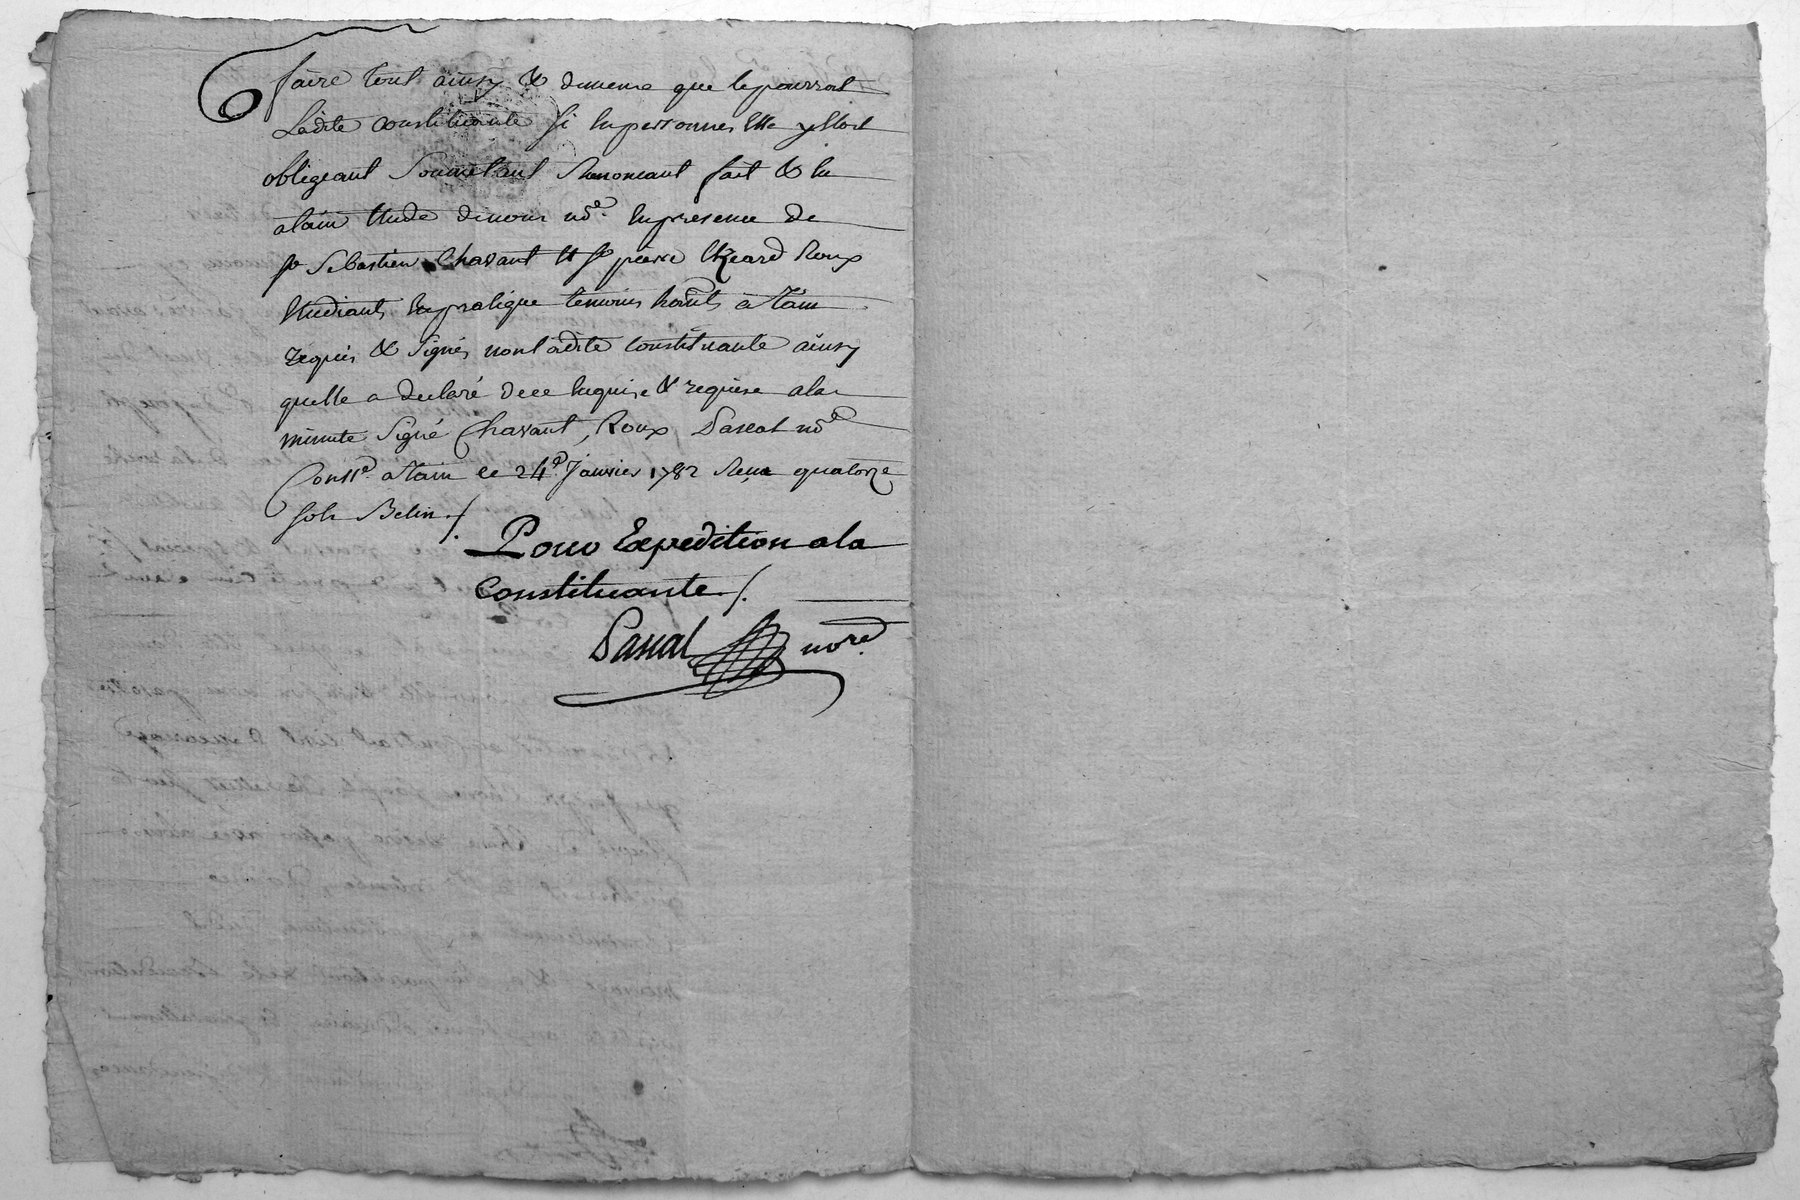 faire tout ainsy & dememe que lepourroit
Ladite constituante si enpersonne Elle yEtoit
obligeant Soumettant Renoncant fait & lu
atain Etude denous nore. enpresence de
sr Sebastien Chavant et sr pierre Roux
Etudiants enpratique temoins habitts à tain
requis & signés nonladite constituante ainsy
quelle a declaré dece enquise & requise ala
minute Signé Chavant, Roux Pascal nore
Conlle. atain le 24e. Janvier 1782 Recu quatorze
sols Belin ./.
Pour Expedition ala
Constituante ./.
Pascal nore.